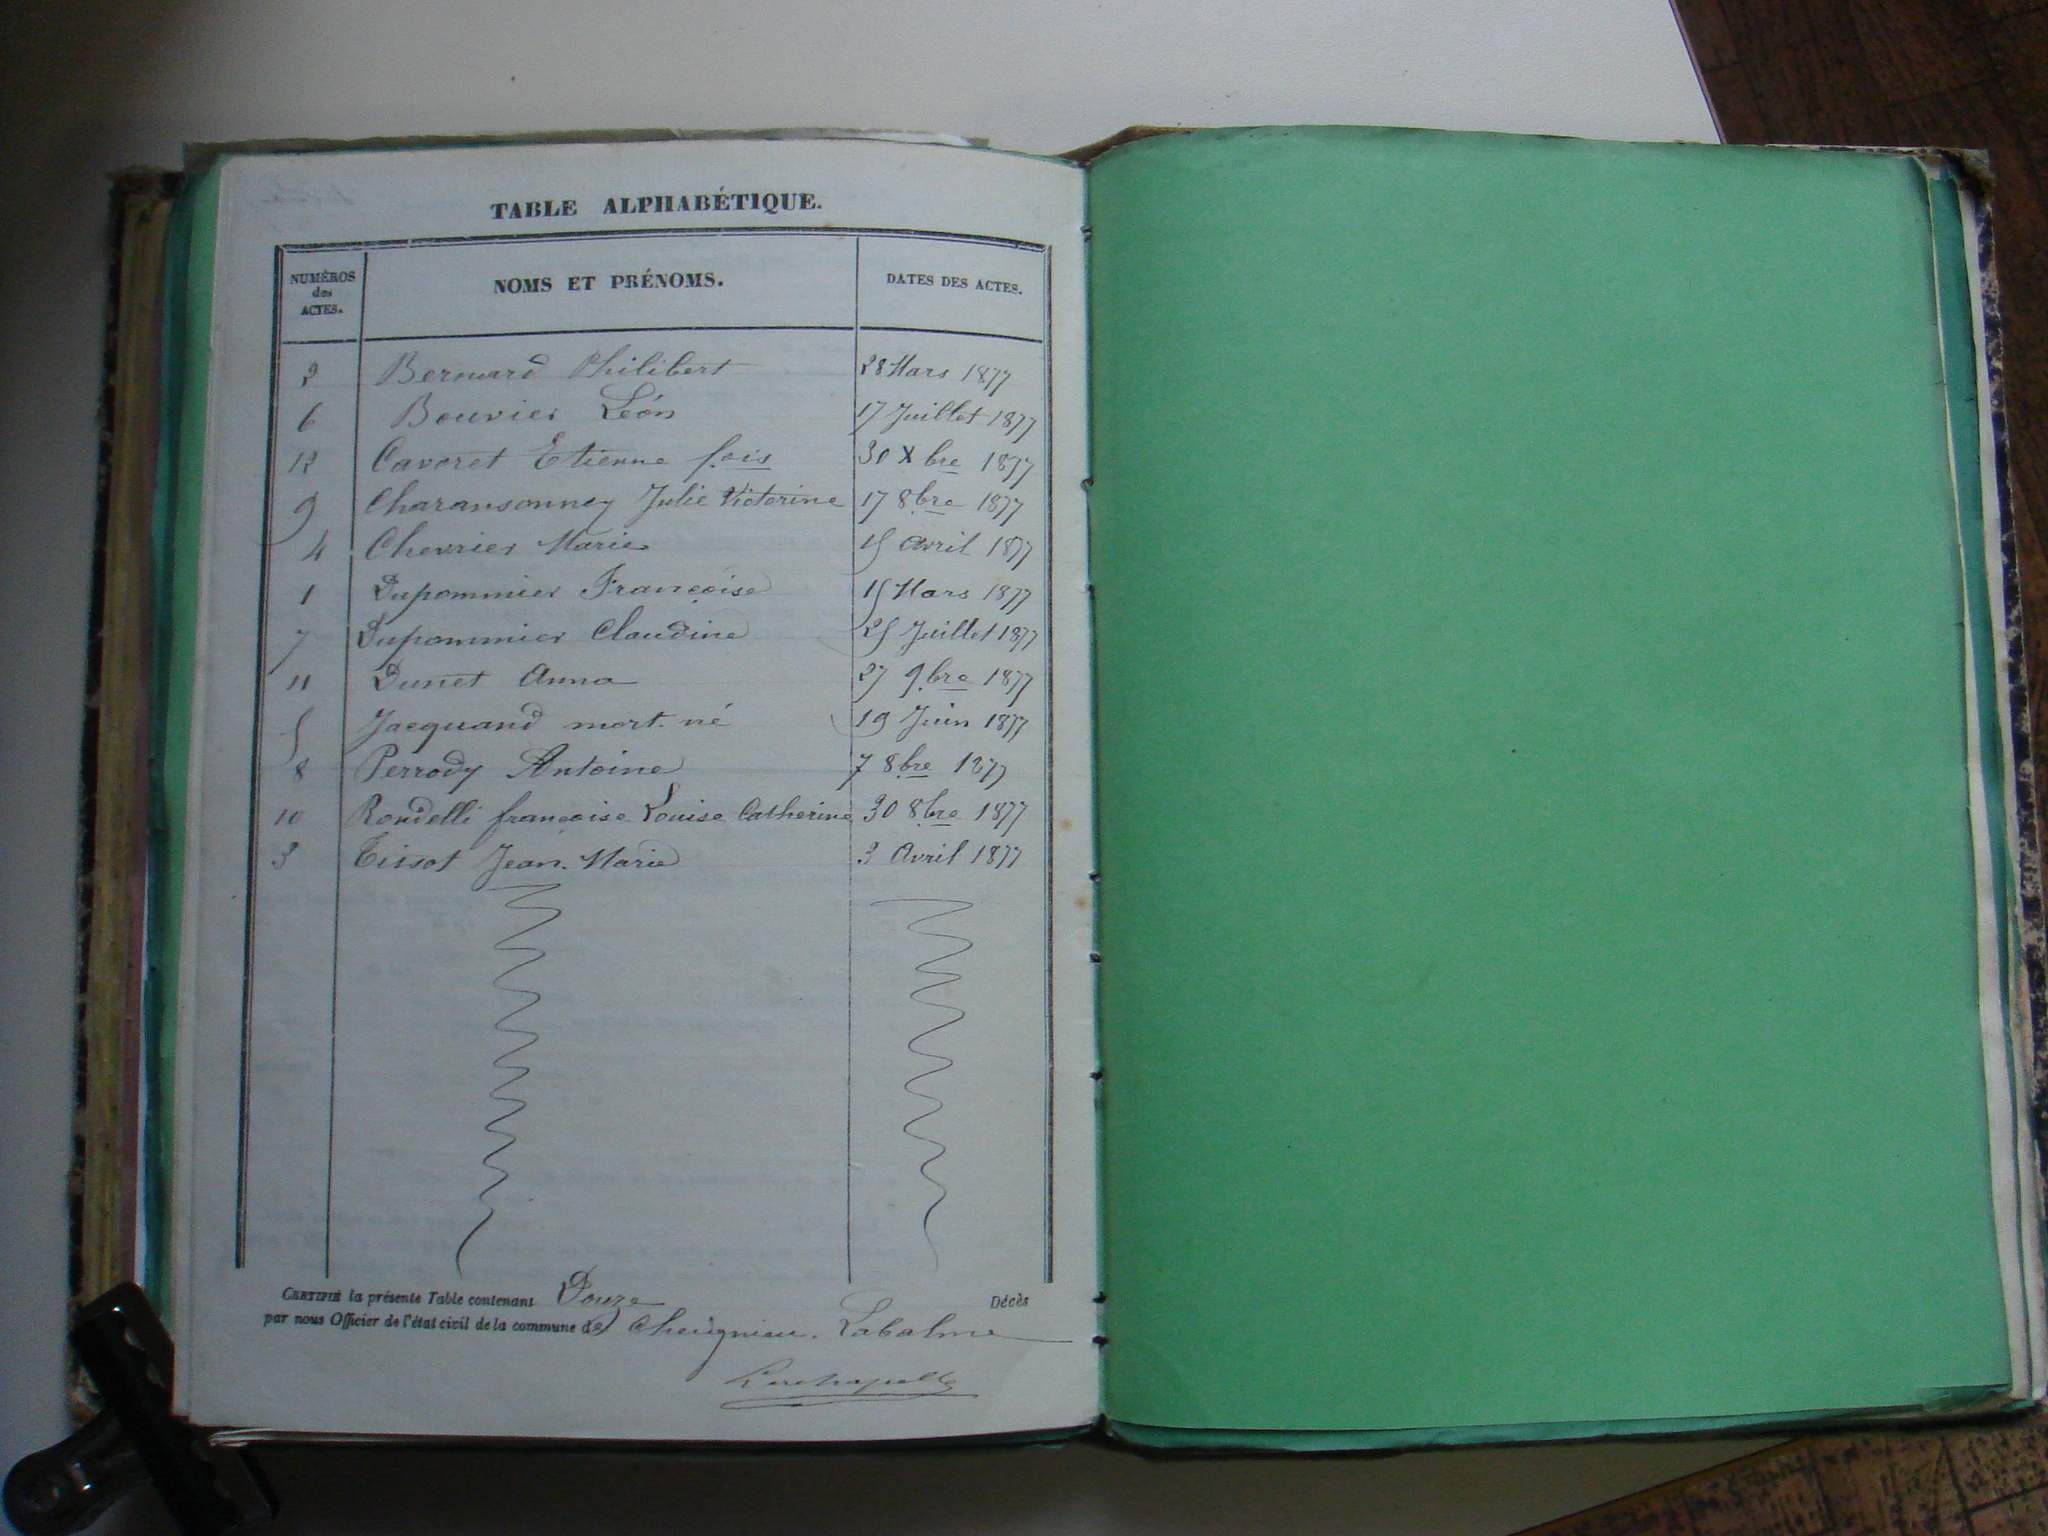 TABLE ALPHABÉTIQUE.
NUMÉROS des ACTES. NOMS ET PRÉNOMS. DATES DES ACTES.
2 Bernard Philibert 28 Mars 1877
6 Bouvier Léon 17 Juillet 1877
12 Cavoret Etienne fois 30 Xbre 1877
9 Charansonney Julie Victorine 17 8bre 1877
4 Chevrier Marie 15 Avril 1877
1 Dupommier Françoise 15 Mars 1877
7 Dupommier Claudine 25 Juillet 1877
11 Dunet Anna 27 9bre 1877
5 Jacquand mort-né 19 Juin 1877
8 Perrody Antoine 7 8bre 1877
10 Rondelli françoise Louise Catherine 30 8bre 1877
3 Tissot Jean-Marie 3 Avril 1877
CERTIFIÉ la présente Table contenant Douze Décès
par nous Officier de l'état civil de la commune de Labalme